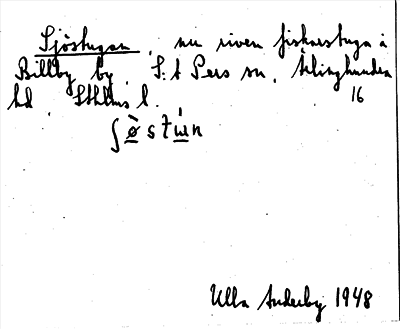 Sjöstugan, nu riven fiskarstuga å
Billby by. S:t Pers sn. Ærlinghundra
hd. Sthlms l. 16
ʃø̀stɯ́n
Ulla Anderby 1948